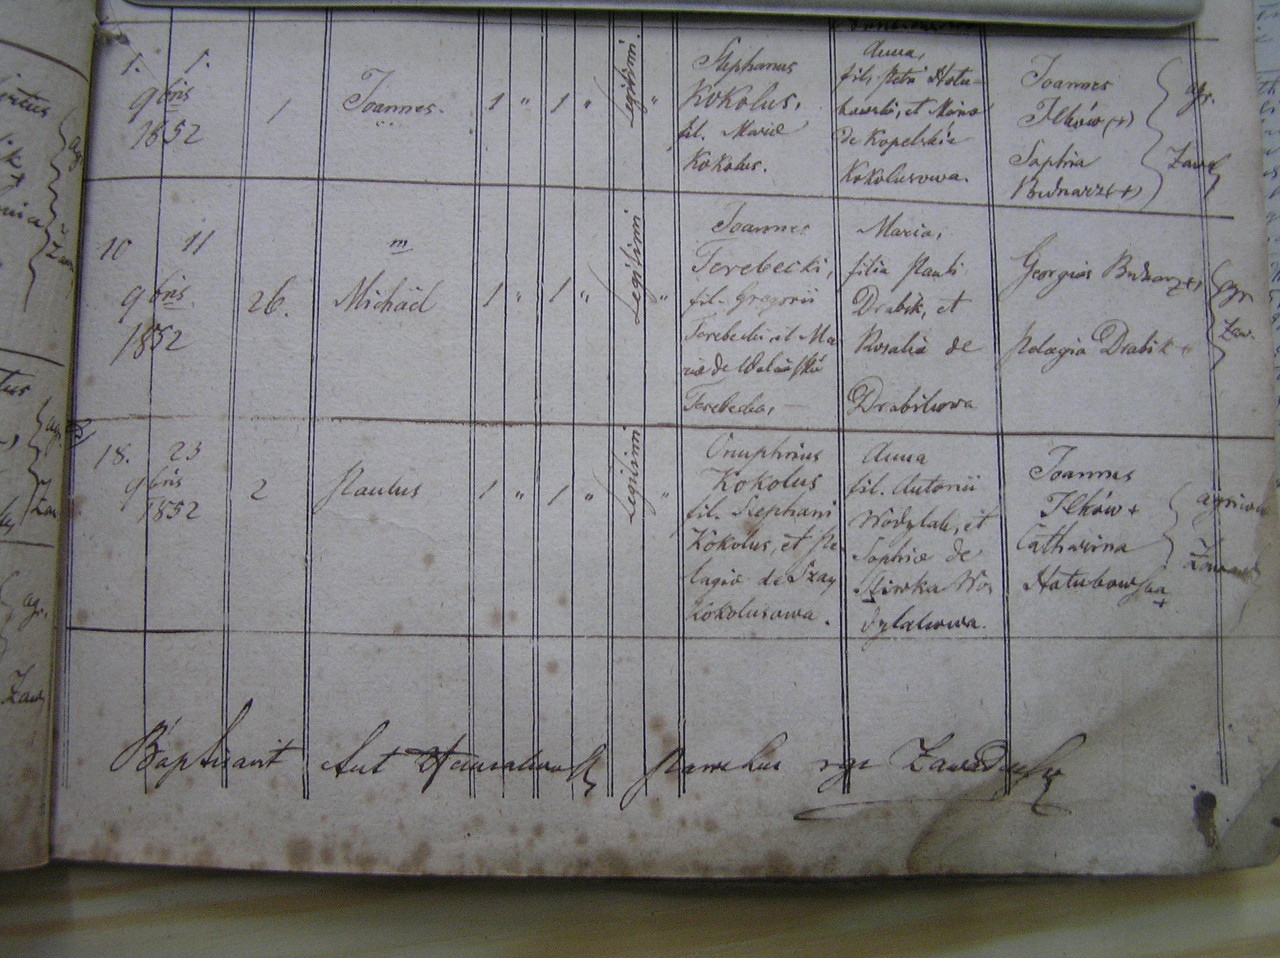 1. 1.
9bris
1852
1
Joannes.
1 " 1 "
Legitimi.
"
Stephanus
Kokolus,
fil. Mariæ
Kokolus.
Anna,
fil. Petri Hołu-
bowski, et Mariæ
de Kopelskie
Kokolusowa.
Joannes
Ilków (+)
Sophia
Bednarz (+)
agr.
Zawd
10 11
9bris
1852
26.
m
Michäel
1 " 1 "
Legitimi
"
Joannes
Terebecki,
fil. Gregorii
Terebecki, et Ma
riæ de
Terebecka,
Maria,
filia Pauli
Drabik, et
Rosaliæ de
Drabikowa
Georgius Bednarz +
Pelagia Drabik +
agr.
Zaw.
18. 23
9bris
1852
2
Paulus
1 " 1 "
Legitimi
"
Onuphrius
Kokolus
fil. Stephani
Kokolus, et Pe-
lagiæ de Szay
Kokolusowa.
Anna
fil. Antonii
Wodylak, et
Sophiæ de
Sliwka Wo-
dylakowa.
Joannes
Ilków +
Catharina
Hołubowska
+
agricolæ
Baptisavit Ant Parochus rgc Zawadzky